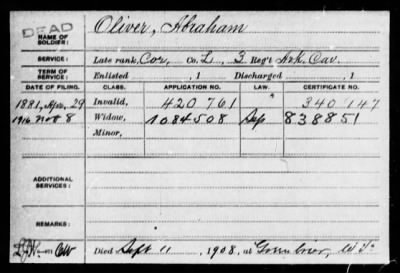 DEAD
NAME OF SOLDIER: Oliver, Abraham
SERVICE: Late rank, Cor, Co. L, 3 Reg't Ark. Cav.
TERM OF SERVICE: Enlisted , 1 Discharged , 1
DATE OF FILING. CLASS. APPLICATION NO. LAW. CERTIFICATE NO.
1881, Apr. 29 Invalid, 420 761 340 147
1916 Nov 8 Widow, 1084508 838851
Minor,
ADDITIONAL SERVICES:
REMARKS:
Died Sept 11, 1908, at Greenbrier,